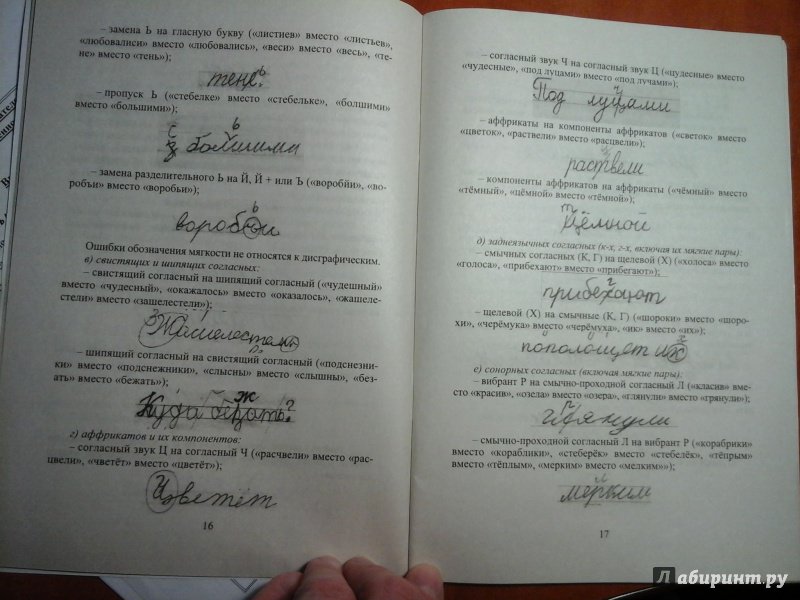 – замена Ь на гласную букву («листиев» вместо «листьев»,
«любовалиси» вместо «любовались», «веси» вместо «весь», «те-
не» вместо «тень»);
ь
тене.
– пропуск Ь («стебелке» вместо «стебельке», «болшими»
вместо «большими»);
с ь
з болшими
– замена разделительного Ь на Й, Й + или Ъ («воробйи», «во-
робъи» вместо «воробьи»);
ь
воробйи
Ошибки обозначения мягкости не относятся к дисграфическим.
в) свистящих и шипящих согласных:
– свистящий согласный на шипящий согласный («чудешный»
вместо «чудесный», «окажалось» вместо «оказалось», «жашеле-
стели» вместо «зашелестели»);
з
Жашелестели
– шипящий согласный на свистящий согласный («подснезни-
ки» вместо «подснежники», «слысны» вместо «слышны», «без-
ать» вместо «бежать»);
ж
Куда безать?
г) аффрикатов и их компонентов:
– согласный звук Ц на согласный Ч («расчвели» вместо «рас-
цвели», «чветёт» вместо «цветёт»);
Цветёт
16
– согласный звук Ч на согласный звук Ц («цудесные» вместо
«чудесные», «под луцами» вместо «под лучами»);
ч
Под луцами
– аффрикаты на компоненты аффрикатов («светок» вместо
«цветок», «раствели» вместо «расцвели»);
ц
раствели
– компоненты аффрикатов на аффрикаты («чёмный» вместо
«тёмный», «цёмной» вместо «тёмной»);
т
Цёмной
д) заднеязычных согласных (к-х, г-х, включая их мягкие пары):
– смычных согласных (К, Г) на щелевой (Х) («холоса» вместо
«голоса», «прибехают» вместо «прибегают»);
г
прибехают
– щелевой (Х) на смычные (К, Г) («шороки» вместо «шоро-
хи», «черёмука» вместо «черёмуха», «ик» вместо «их»);
х
пополощет ик
е) сонорных согласных (включая мягкие пары):
– вибрант Р на смычно-проходной согласный Л («класив» вме-
сто «красив», «озела» вместо «озера», «глянули» вместо «грянули»);
глянули
– смычно-проходной согласный Л на вибрант Р («корабрики»
вместо «кораблики», «стеберёк» вместо «стебелёк», «тёпрым»
вместо «тёплым», «мерким» вместо «мелким»»);
л
мерким
17
Лабиринт.ру